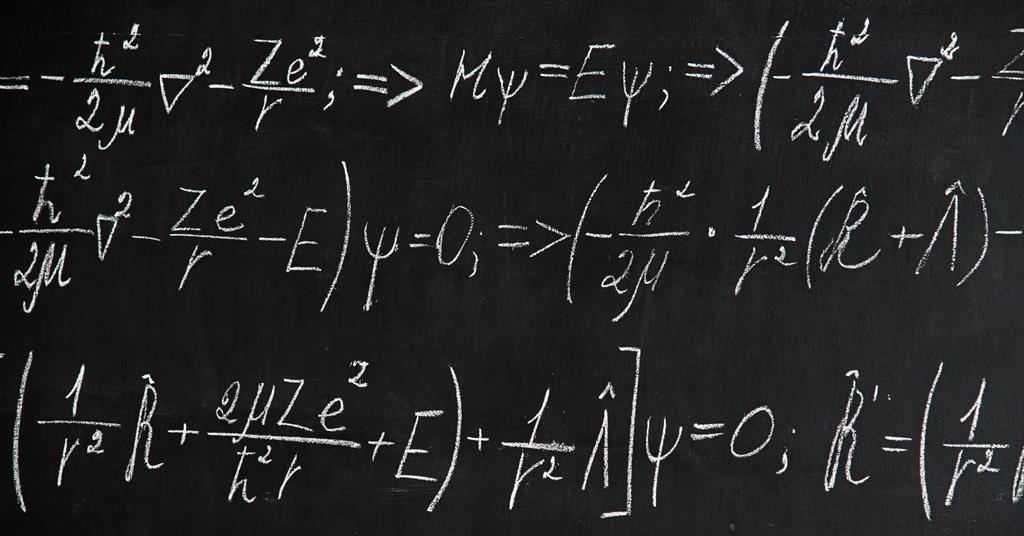 = -ħ²/2μ ∇² - Ze²/r ; => Hψ = Eψ ; => (-ħ²/2μ ∇² -
-ħ²/2μ ∇² - Ze²/r - E) ψ = 0 ; => (-ħ²/2μ · 1/r² (R̂ + Λ̂) -
[(1/r² R̂ + 2μZe²/ħ²r + E) + 1/r² Λ̂] ψ = 0 ; R̂' = (1/r²